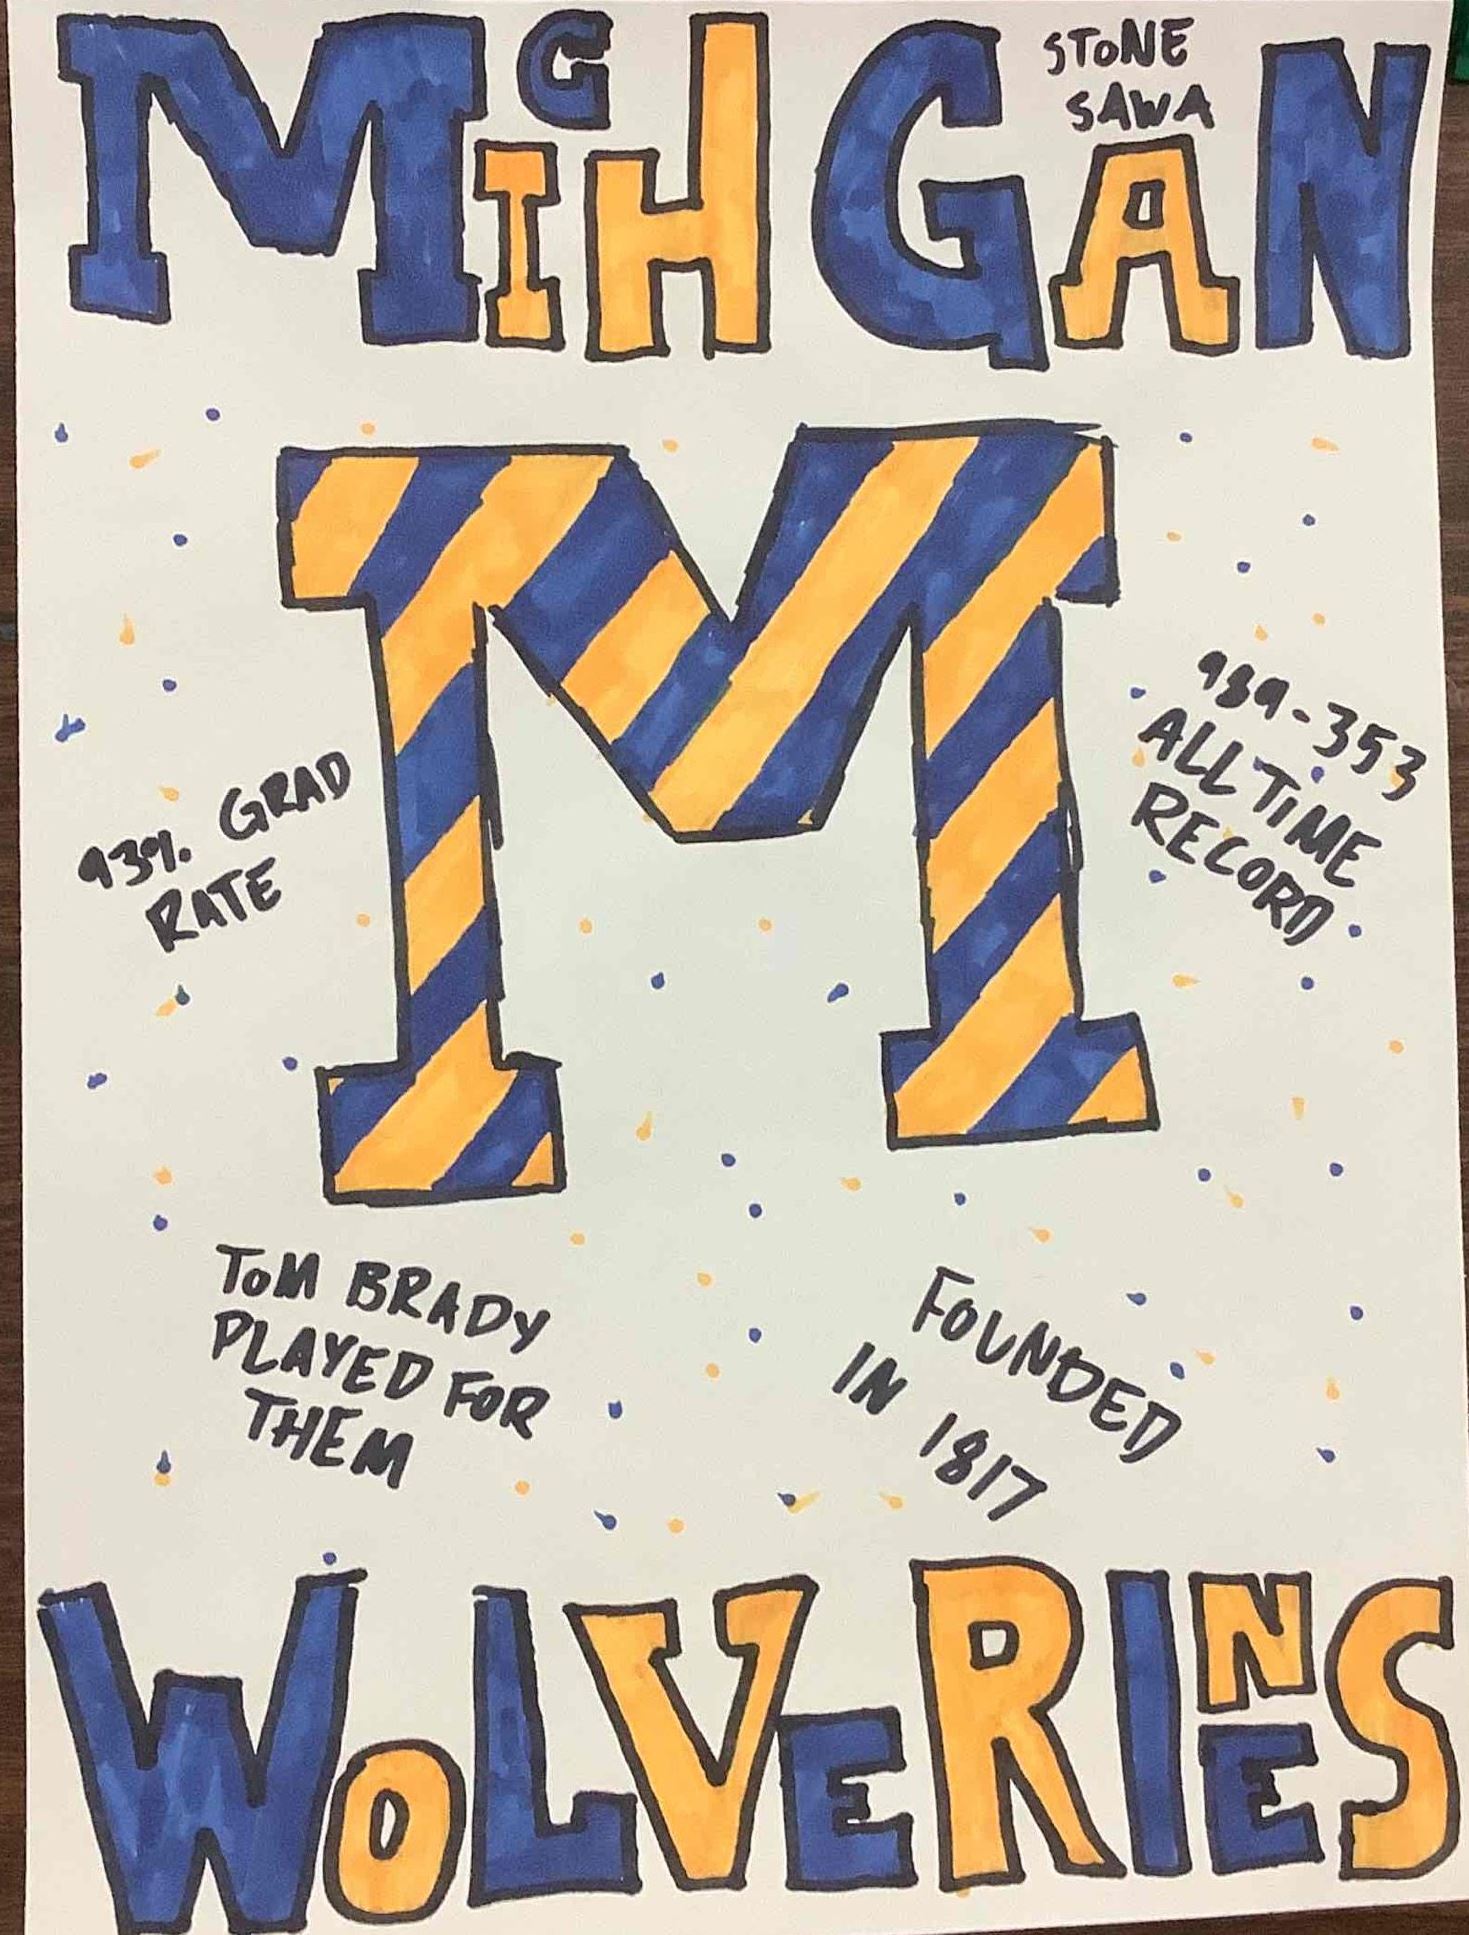 MICHGAN
STONE
SAWA
M
989-353
ALL TIME
RECORD
93% GRAD
RATE
TOM BRADY
PLAYED FOR
THEM
FOUNDED
IN 1817
WOLVERINES